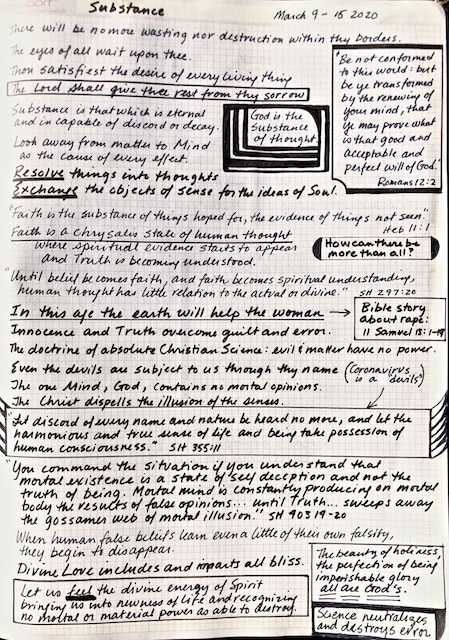 Substance
March 9 - 15 2020
There will be no more wasting nor destruction within thy borders.
The eyes of all wait upon thee.
Thou satisfiest the desire of every living thing
The Lord shall give thee rest from thy sorrow
"Be not conformed
to this world: but
be ye transformed
by the renewing of
your mind, that
ye may prove what
is that good and
acceptable and
perfect will of God."
Romans 12:2
Substance is that which is eternal
and in capable of discord or decay.
God is the
Substance
of thought.
Look away from matter to Mind
as the cause of every effect.
Resolve things into thoughts
Exchange the objects of sense for the ideas of Soul.
"Faith is the substance of things hoped for, the evidence of things not seen."
Heb 11:1
Faith is a chrysalis state of human thought
where spiritual evidence starts to appear
and Truth is becoming understood.
How can there be
more than all?
"Until belief becomes faith, and faith becomes spiritual understanding,
human thought has little relation to the actual or divine." SH 297:20
In this age the earth will help the woman
Bible story
about rape:
11 Samuel 13:1-19
Innocence and Truth overcome guilt and error.
The doctrine of absolute Christian Science: evil & matter have no power.
Even the devils are subject to us through thy name
(Coronavirus
is a "devils")
The one Mind, God, contains no mortal opinions.
The Christ dispells the illusion of the senses.
"Let discord of every name and nature be heard no more, and let the
harmonious and true sense of life and being take possession of
human consciousness." SH 355:11
"You command the situation if you understand that
mortal existence is a state of self deception and not the
truth of being. Mortal mind is constantly producing on mortal
body the results of false opinions... until Truth... sweeps away
the gossamer web of mortal illusion." SH 403:19-20
When human false beliefs learn even a little of their own falsity,
they begin to disappear.
Divine Love includes and imparts all bliss.
The beauty of holiness,
the perfection of being
imperishable glory
all are God's.
Let us feel the divine energy of Spirit
bringing us into newness of life and recognizing
no mortal or material power as able to destroy.
Science neutralizes
and destroys error